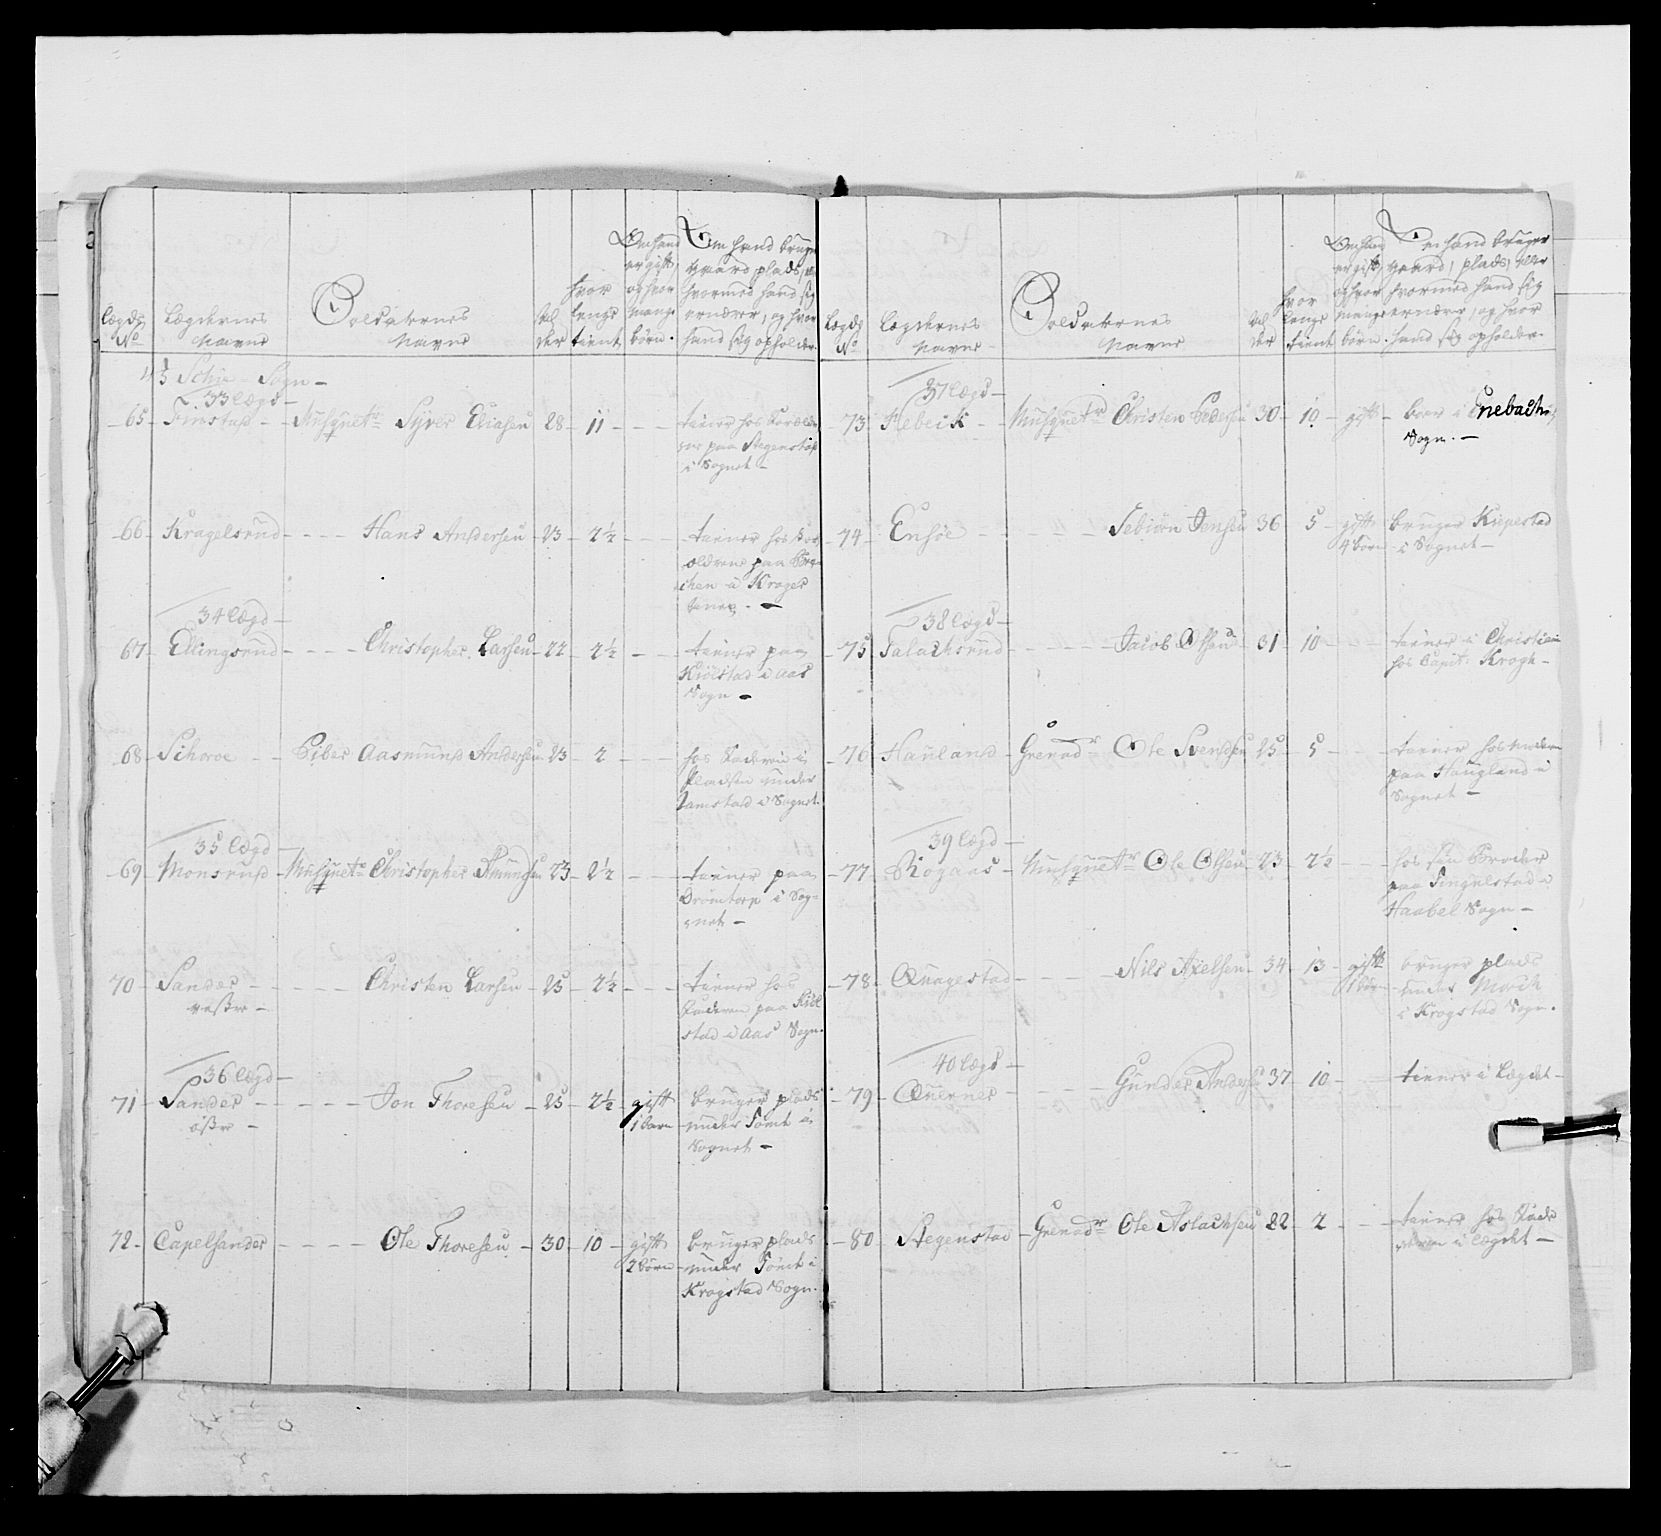 Lægds No
Lægdernes Navne
Soldaternes Navne
Alder
hvor lenge tient
Om hand er gift, og hvor mange børn.
Om hand bruger gaard, plads, eller hvormed hand sig ernærer, og hvor hand sig opholder.
Schie Sogn –
33 Lægd –
65 Finstad – Musquetr Syver Eliasen 28 – 11 – – –
tiener hos Forældr
paa Stegenstad
i Sognet –
66 Kragelsrud – – – – Hans Andersen – 23 – 2½ – – –
tiener hos For
ældrene paa
i Kroger
34 Lægd –
67 Ellingsrud – – – – Christopher Larsen – 22 – 2½ – – –
tiener paa
Kiölstad i Aas
Sogn –
68 Schoroe – – Piber Aasmund Andersen 23 – 2 – – –
hos Faderen i
Pladsen under
i Sognet.
35 Lægd –
69 Monsrud – Musquetr Christopher Amundsen 23 – 2½ – – –
tiener paa
Drömtorp i Sog-
net –
70 Sander – – – – – Christen Larsen – 25 – 2½ – – –
vestre –
tiener hos
Faderen paa Kiöl
stad i Aas Sogn.
36 Lægd –
71 Sander – – – – – Jon Thoresen – 25 – 2½ – gift
østre –
1 barn –
bruger plads
under Tomt i
Sognet –
72 Capelsander – – – – Ole Thoresen – 30 – 10 – gift
2 börn –
bruger plads
under Tomt i
Krogstad Sogn.
Lægds No
Lægdernes Navne
Soldaternes Navne
Alder
hvor lenge tient
Om hand er gift, og hvor mange børn.
Om hand bruger gaard, plads, eller hvormed hand sig ernærer, og hvor hand sig opholder.
37 Lægd –
73 Hebeck – – Musquetr Christen Pedersen 30 – 10 – gift – boer i Enebach
Sogn. –
74 Ensöe – – – – – Sebiörn Jensen 36 5 – gift – bruger Kiepestad
4 börn – i Sognet –
38 Lægd –
75 Falachsrud – – – – – Jacob Olsen – 31 – 10 – – –
tiener i Christiania
hos Capit: Krogh –
76 Hauland – Grenadr Ole Svendsen 25 – 5 – – –
tiener hos Moderen
paa Haugland i
Sognet –
39 Lægd –
77 Rogaas – Musquetr Ole Olsen – 23 – 2½ – – –
hos sin Broder
paa Tingulstad i
Haabel Sogn –
78 Quagestad – – – – Nils Axelsen – 34 – 13 – gift
1 börn
bruger plads
under
i Krogstad Sogn.
40 Lægd –
79 Querner – – – – Gunder Andersen 37 – 10 – – – tiener i Lægdet –
80 Stegenstad – Grenadr Ole Aslachsen 22 – 2 – – –
tiener hos Fade
ren i Lægdet –